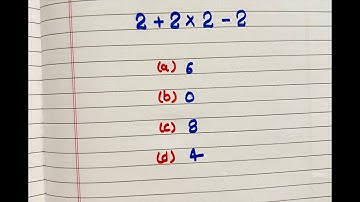 2 + 2 × 2 - 2
(a) 6
(b) 0
(c) 8
(d) 4